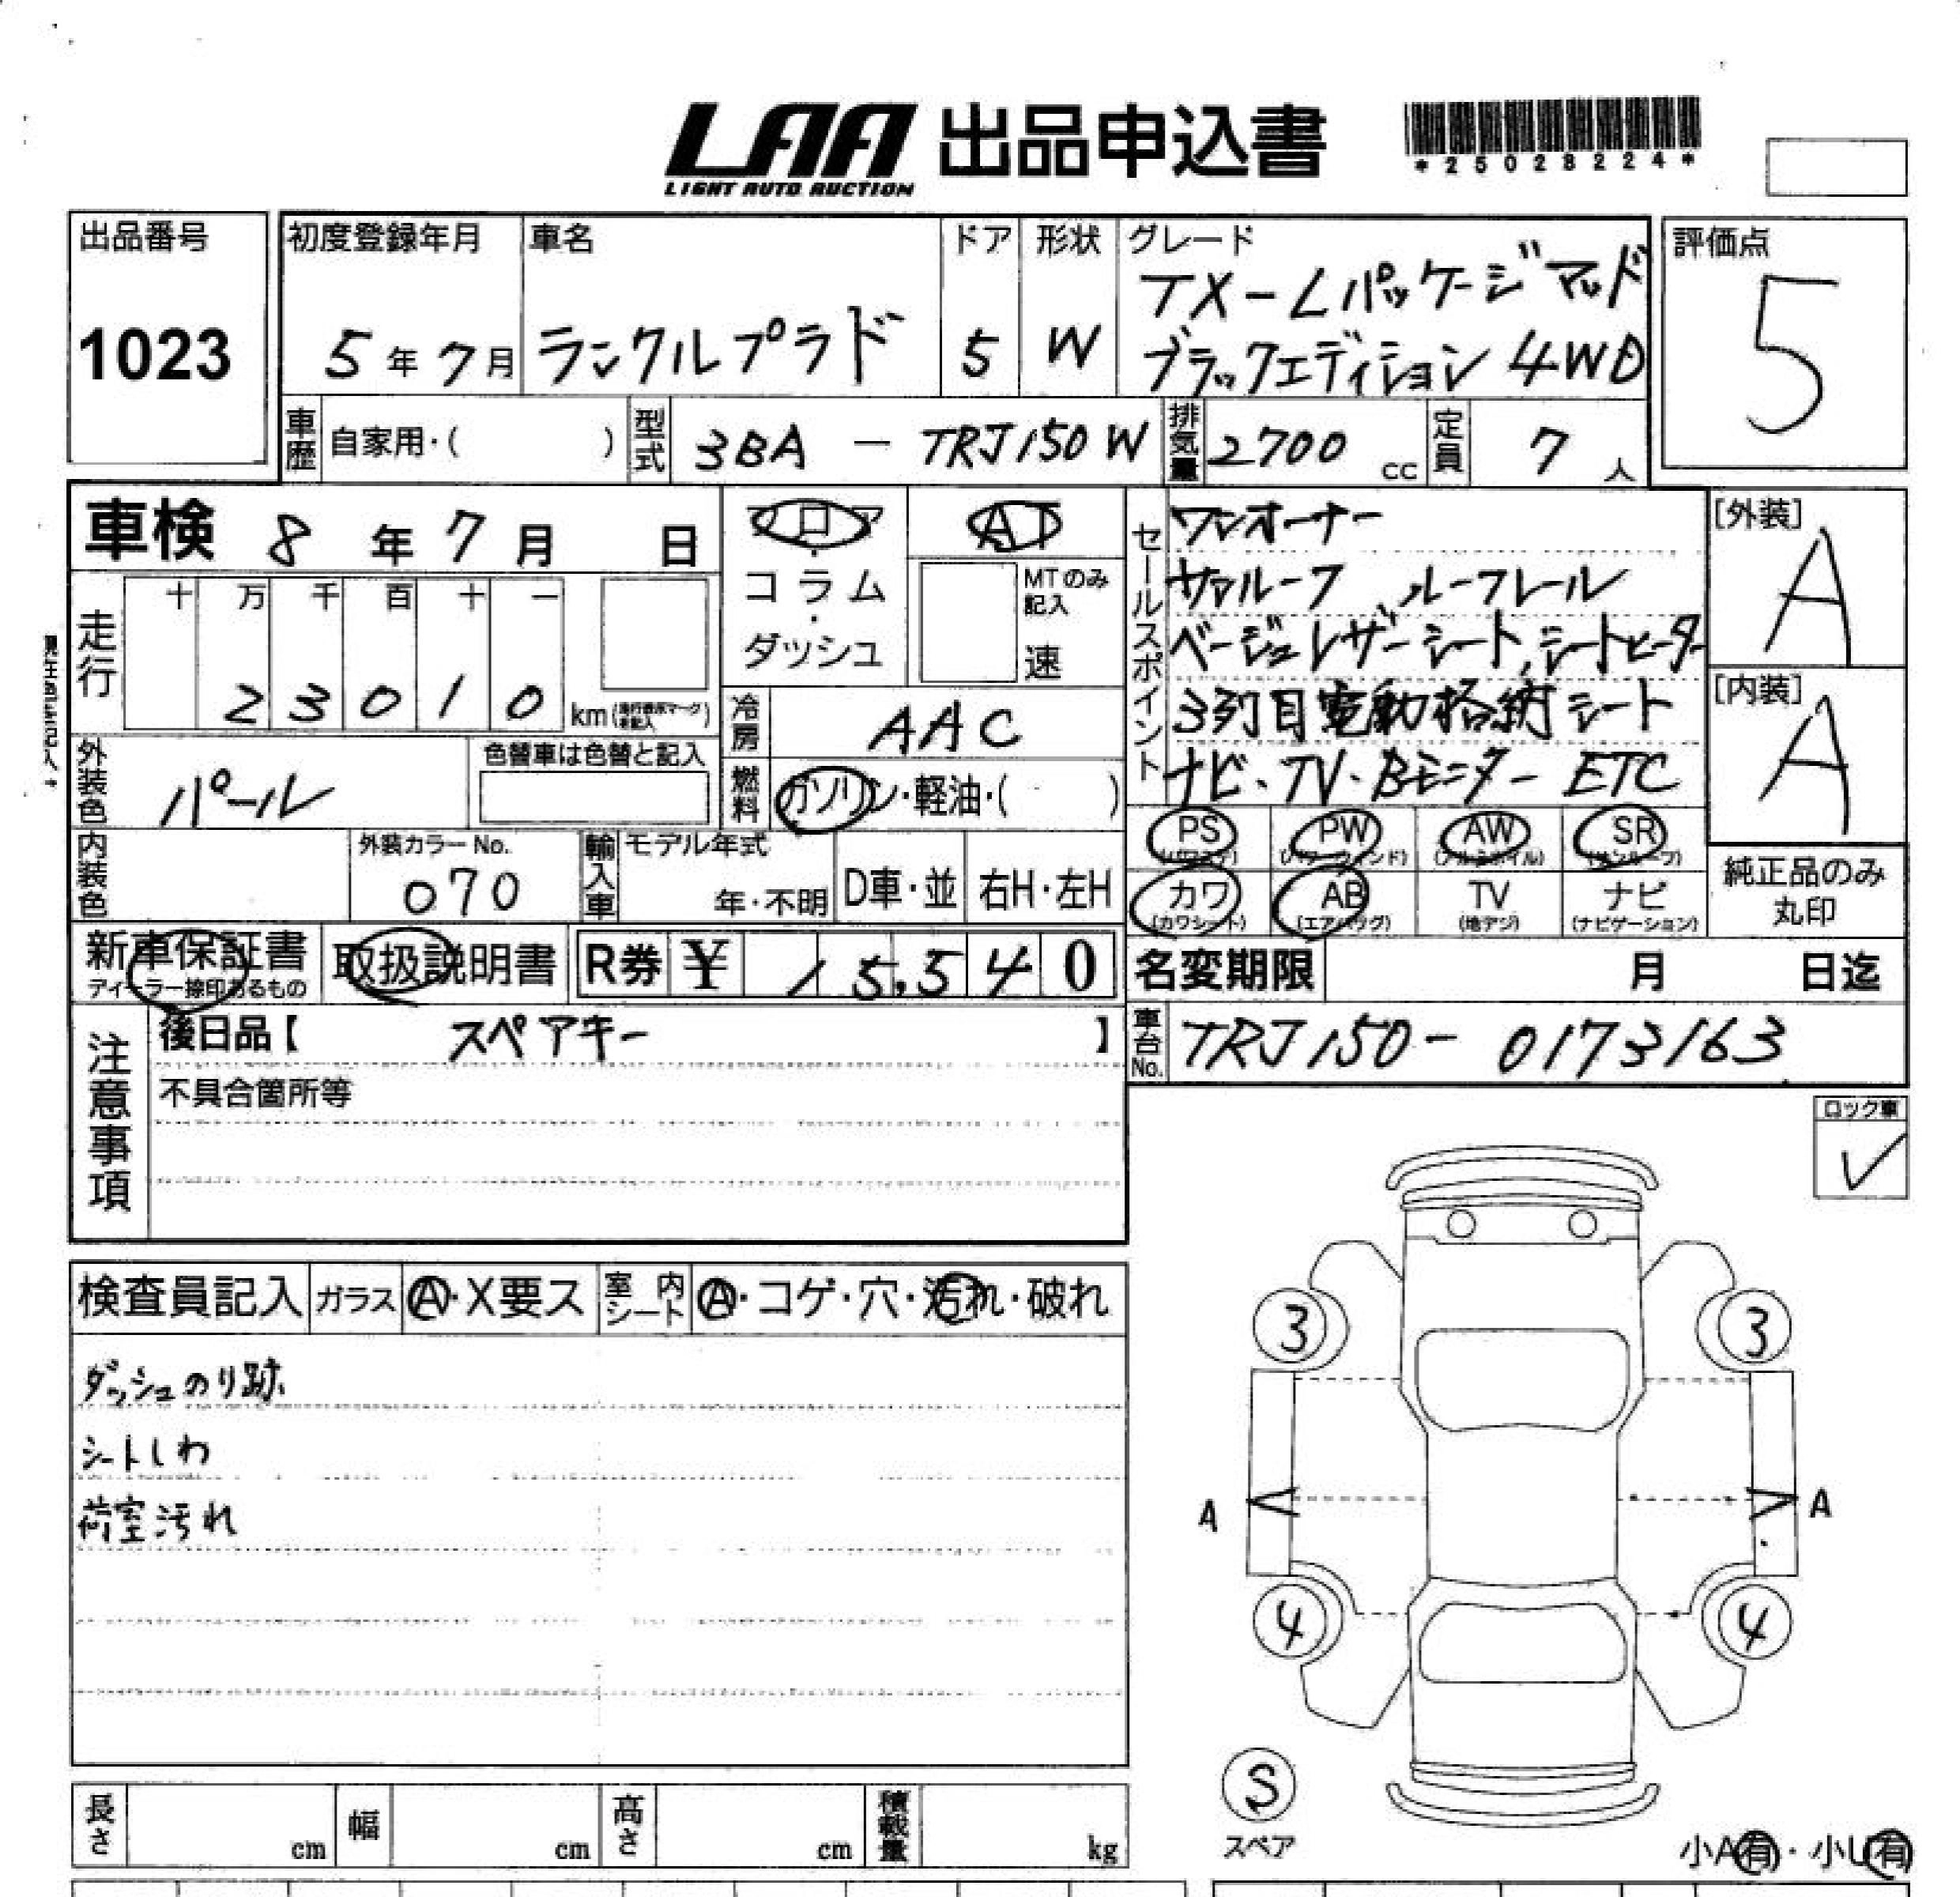 LAA 出品申込書
LIGHT AUTO AUCTION
*25028224*
出品番号
1023
初度登録年月
5年7月
車名
ランクルプラド
ドア
5
形状
W
グレード
TX-Lパッケージマッド
ブラックエディション 4WD
評価点
5
車歴
自家用・( )
型式
3BA - TRJ150W
排気量
2700 cc
定員
7 人
車検 8年7月 日
フロア・コラム・ダッシュ
AT
MTのみ記入
速
走行
十 万 千 百 十 一
23010 km
外装色
パール
色替車は色替と記入
冷房
AAC
燃料
ガソリン・軽油・( )
内装色
外装カラーNo.
070
輸入車
モデル年式
年・不明
D車・並
右H・左H
新車保証書
取扱説明書
R券 ¥ 15,540
セールスポイント
ワンオーナー
サンルーフ ルーフレール
ベージュレザーシート,シートヒーター
3列目電動格納シート
ナビ・TV・Bモニター ETC
[外装]
A
[内装]
A
PS PW AW SR
カワ AB TV ナビ
(カワシート) (エアバッグ) (地デジ) (ナビゲーション)
純正品のみ
丸印
名変期限 月 日迄
車台No.
TRJ150-0173163
注意事項
後日品【 スペアキー 】
不具合箇所等
ロック車
✓
検査員記入
ガラス
A・X要ス
室内シート
A・コゲ・穴・汚れ・破れ
ダッシュのり跡
シートしわ
荷室汚れ
3 3
A A
4 4
S
スペア
小A有・小U有
長さ cm
幅 cm
高さ cm
積載量 kg